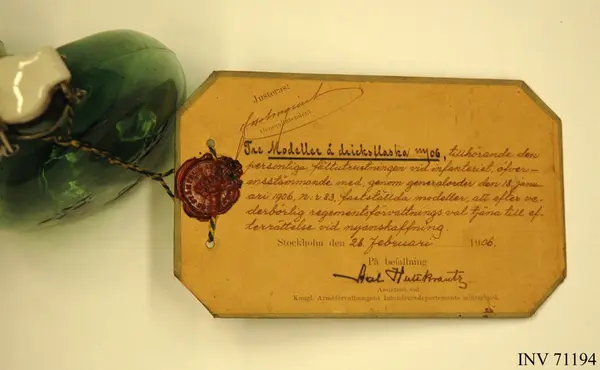 Justeras:
Tre Modeller å dricksflaska m/06, tillhörande den
personliga fältutrustningen vid infanteriet, öfver-
ensstämmande med, genom generalorder den 18 janu-
ari 1906, n:r 23, fastställda modeller, att efter ve-
derbörlig regementsförvaltnings val tjäna till ef-
terrättelse vid nyanskaffning.
Stockholm den 26 Februari 1906.
På befallning
Axel Hultkrantz
Kungl. Arméförvaltningens Intendentsdepartements
INV 71194